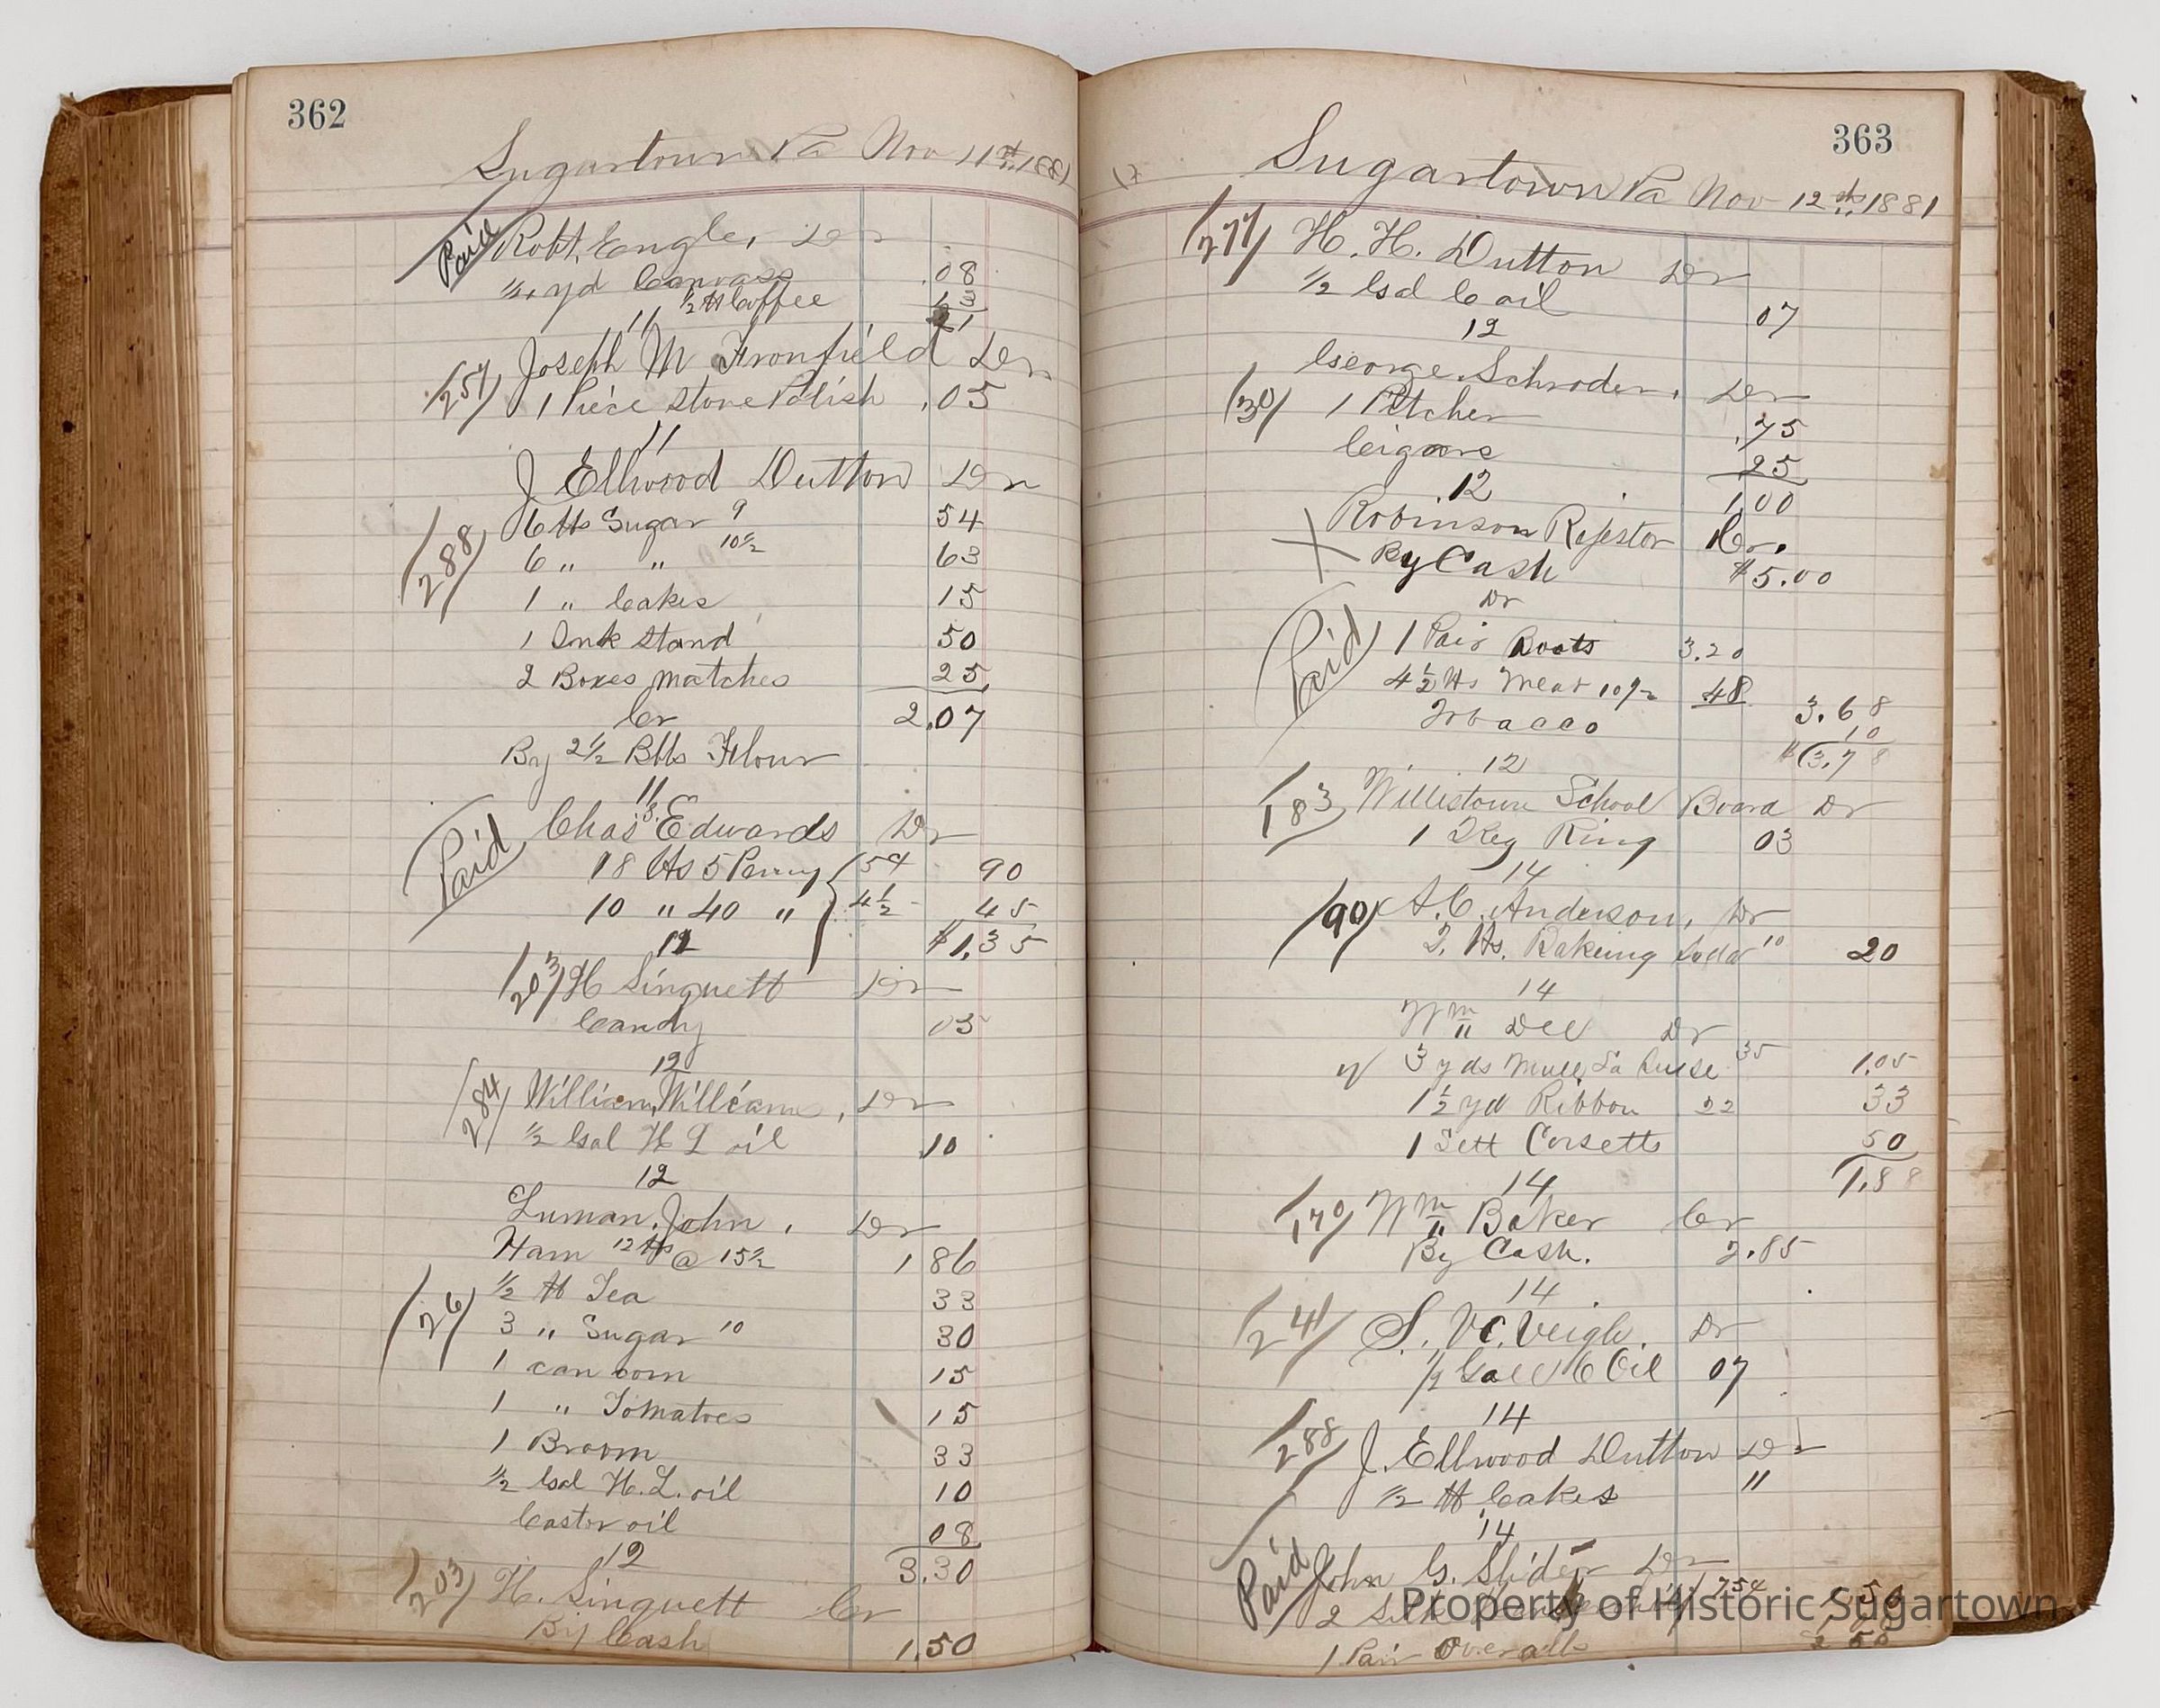 362
Sugartown Pa Nov 11th 1881
Paid Robt. Engle, Dr
yd Canvass .08
1/2 lb Coffee 13
11 21
Joseph M Fronfield Dr
257 1 Piece Stove Polish .05
11
J Ellwood Dutton Dr
288 6 lbs Sugar 9 54
6 " " 10 1/2 63
1 " Cakes 15
1 Ink Stand 50
2 Boxes Matches 25
Cr 2.07
By 2 1/2 Bbls Flour
11
Paid Chas Edwards Dr
18 lbs 5 Penny 5 90
10 " 40 " 4 1/2 45
12 $1.35
203 H Singuett Dr
Candy 05
12
284 William Williams, Dr
1/2 Gal H L oil 10
12
Luman, John, Dr
Ham 12 lbs @ 15 1/2 1 86
26 1/2 lb Tea 33
3 " Sugar 10 30
1 can corn 15
1 " Tomatoes 15
1 Broom 33
1/2 Gal H. L. oil 10
Castor oil 08
12 3.30
203 H. Singuett Cr
By Cash 1.50
363
Sugartown Pa Nov 12th 1881
277 H. H. Dutton Dr
1/2 Gal C oil 07
12
George Schroder, Dr
30 1 Pitcher .75
Cigars 25
12 1.00
Robinson Cr.
By Cash $5.00
Dr
Paid 1 Pair Boots 3.20
4 1/2 lbs Meat 10 1/2 48 3.68
Tobacco 10
12 $3.78
183 Willistown School Board Dr
1 Key Ring 03
14
90 A. C. Anderson, Dr
2 lbs. Bakeing Soda 10 20
14
Wm Dee Dr
3 yds 35 1.05
1 1/2 yd Ribbon 22 33
1 Sett Corsetts 50
14 1.88
170 Wm Baker Cr
By Cash. 2.85
14
241 S. Veigh. Dr
1/2 Gal C Oil 07
14
288 J. Ellwood Dutton Dr
1/2 lb Cakes "
14
Paid John G. Slider Dr
2 Silk
1 Pair Overalls
Property of Historic Sugartown